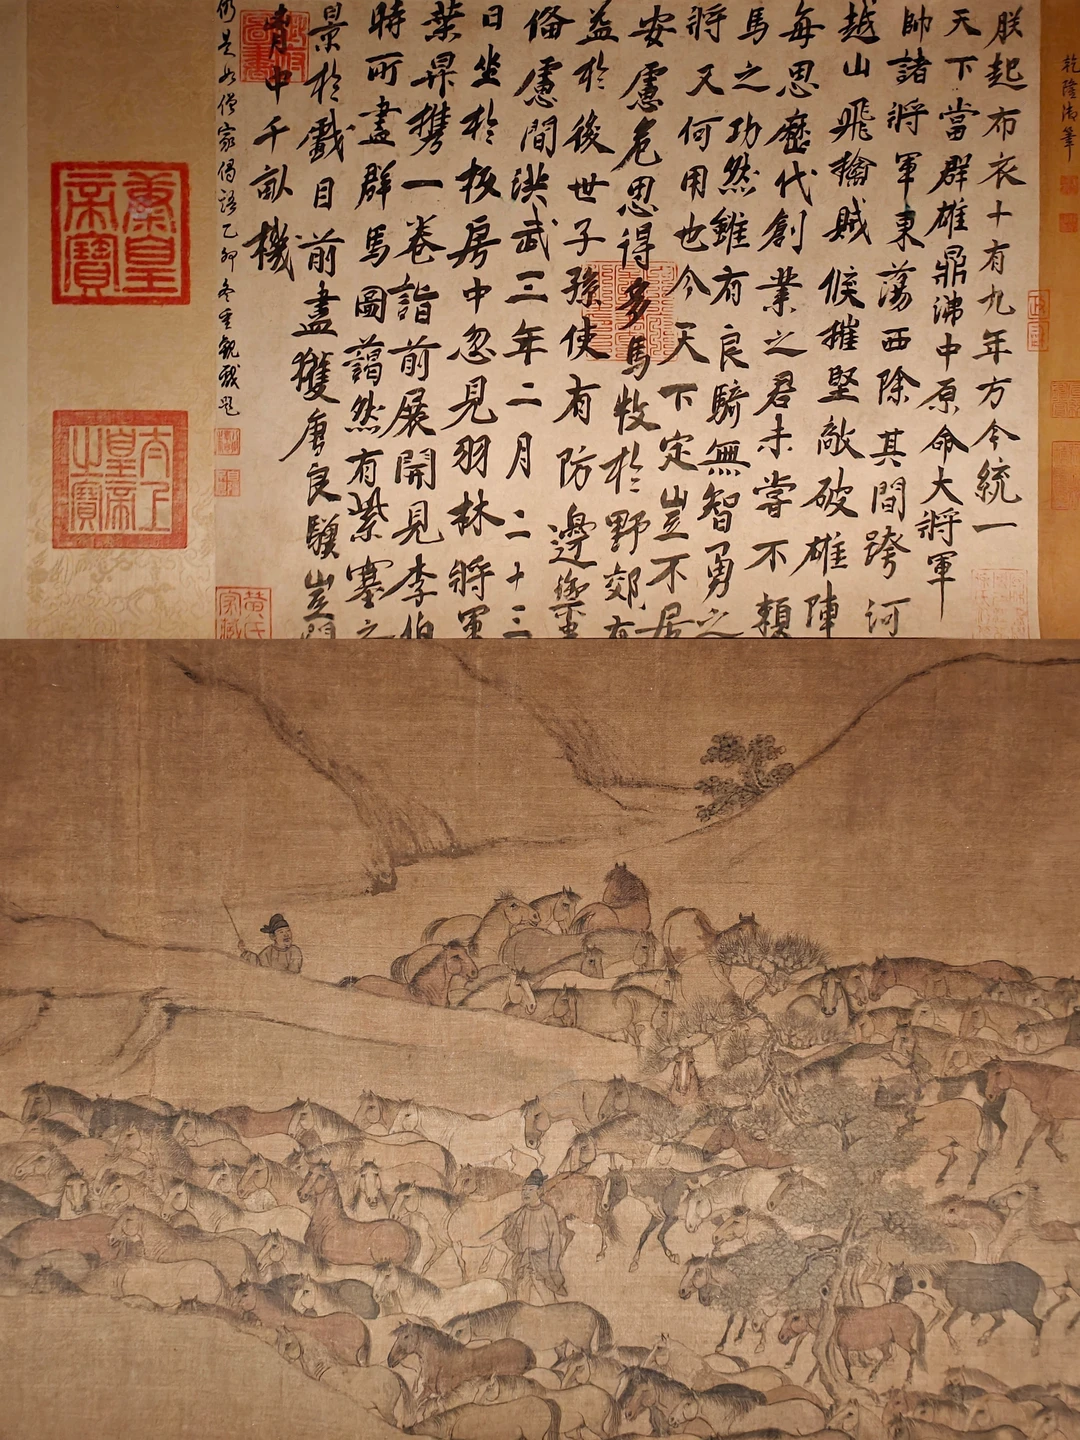 乾隆御筆
朕起布衣十有九年方今統一
天下當群雄鼎沸中原命大將軍
帥諸將軍東蕩西除其間跨河
越山飛擒賊候摧堅敵破雄陣
每思歷代創業之君未嘗不賴
馬之功然雖有良騎無智勇之
將又何用也今天下定豈不居
安慮危思得多馬牧於野郊有
益於後世子孫使有防邊禦
俻慮間洪武三年二月二十三
日坐於板房中忽見羽林將軍
葉昇携一卷詣前展開見李伯
時所畫群馬圖藹然有紫塞之
景於戲目前盡獲唐良驥豈
中千畝機
是如僧家偈語乙卯冬重觀戲題
太上皇帝之寶